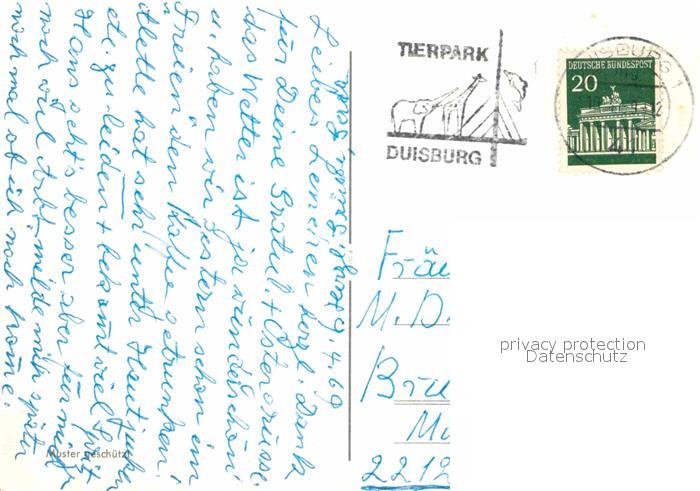 Liebes Lenchen herzl. Dank
für Deine Gratul. + Ostergrüsse.
das Wetter ist ja wunderschön
u. haben wir gestern schon im
Freien den Kaffee getrunken!
hat sehr unter Hautjucken
etc. zu leiden + bekommt viel
Hans geht's besser aber für mich
noch viel Arbt. melde mich später
noch mal ob ich noch komme.
TIERPARK
DUISBURG
DUISBURG 1
DEUTSCHE BUNDESPOST
20
Fräu
M. D.
Bru
2212
privacy protection
Datenschutz
Muster geschützt